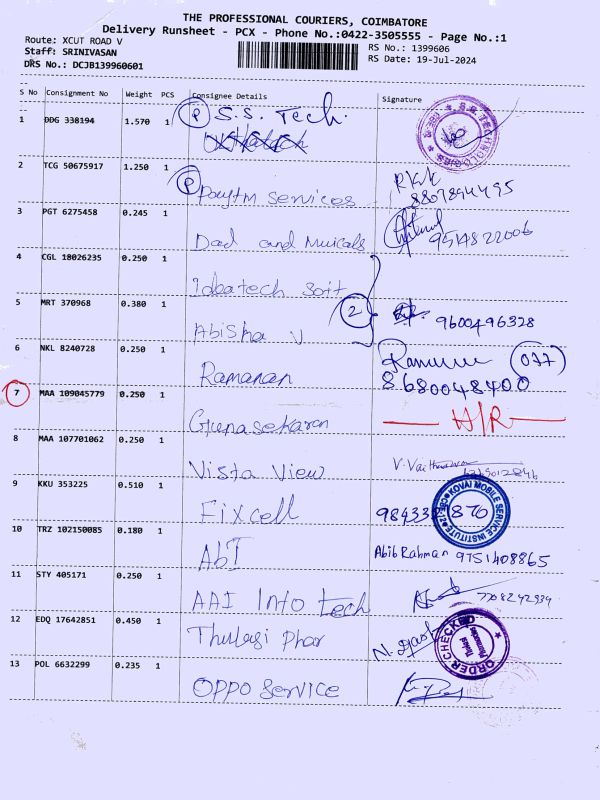 THE PROFESSIONAL COURIERS, COIMBATORE
Delivery Runsheet - PCX - Phone No.:0422-3505555 - Page No.:1
Route: XCUT ROAD V
Staff: SRINIVASAN
DRS No.: DCJB139960601
RS No.: 1399606
RS Date: 19-Jul-2024
S No Consignment No Weight PCS Consignee Details Signature
1 DDG 338194 1.570 1 P S.S. Tech.
2 TCG 50675917 1.250 1 P Paytm Services 8807894495
3 PGT 6275458 0.245 1 Dad and Muicals 9514822006
4 CGL 18026235 0.250 1 Ideatech Soft
5 MRT 370968 0.380 1 Abisha V 2 9600496328
6 NKL 8240728 0.250 1 Ramanan (077) 8680048400
7 MAA 109045779 0.250 1 Gunasekaran H/R
8 MAA 107701062 0.250 1 Vista View
9 KKU 353225 0.510 1 Fixcell KOVAI MOBILE SERVICE INSTITUTE
10 TRZ 102150085 0.180 1 AbT Abib Rahman 9751408865
11 STY 405171 0.250 1 AAI Info tech
12 EDQ 17642851 0.450 1 Thulasi Phar ORDER CHECKED
13 POL 6632299 0.235 1 OPPO Service